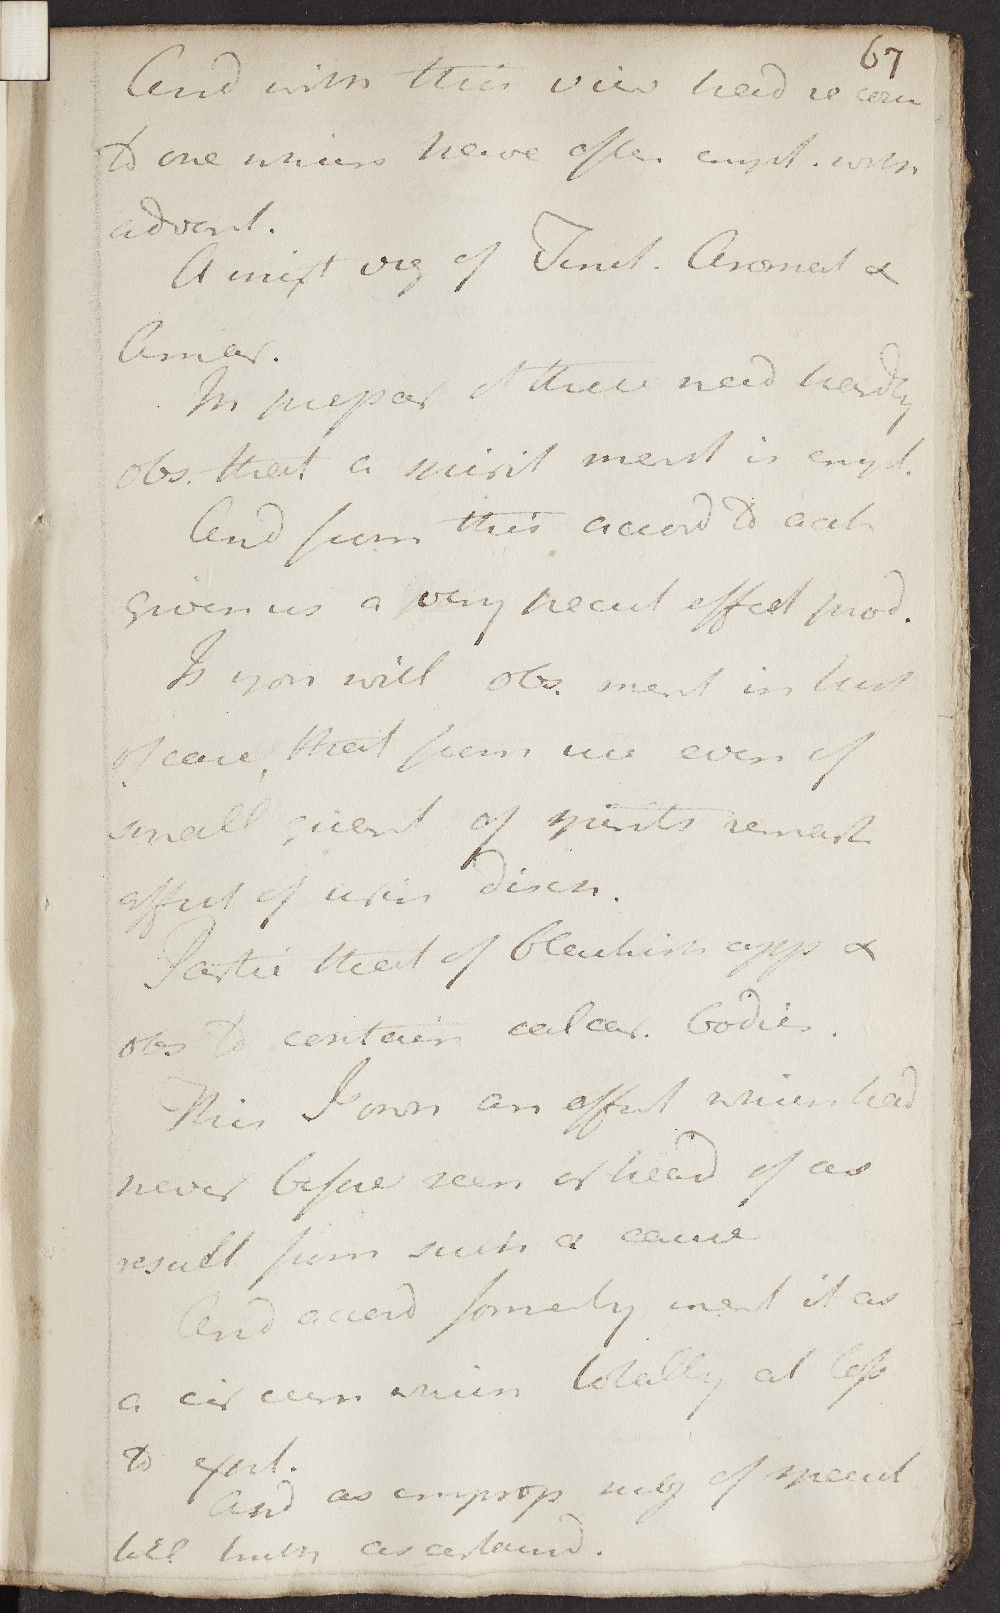 67
And with this view had recou
to one which have often empl. with
advant.
A mixt viz of Tinct. Aromat &
Amar.
In prepar of these need hardly
obs. that a spirit menst is empl.
And from this accord to
given us a very pecul effect prod.
To you will obs. ment in hist
of case, that from use even of
small quant of spirits remark
effect of discn.
Partic that of bleuhish app &
obs to contain calcar. bodies.
This I own an effect which had
never before seen or heard of as
result from such a cause
And accord formerly ment it as
a circum which totally at loss
to expl.
And as improp of
till truth ascertaind.